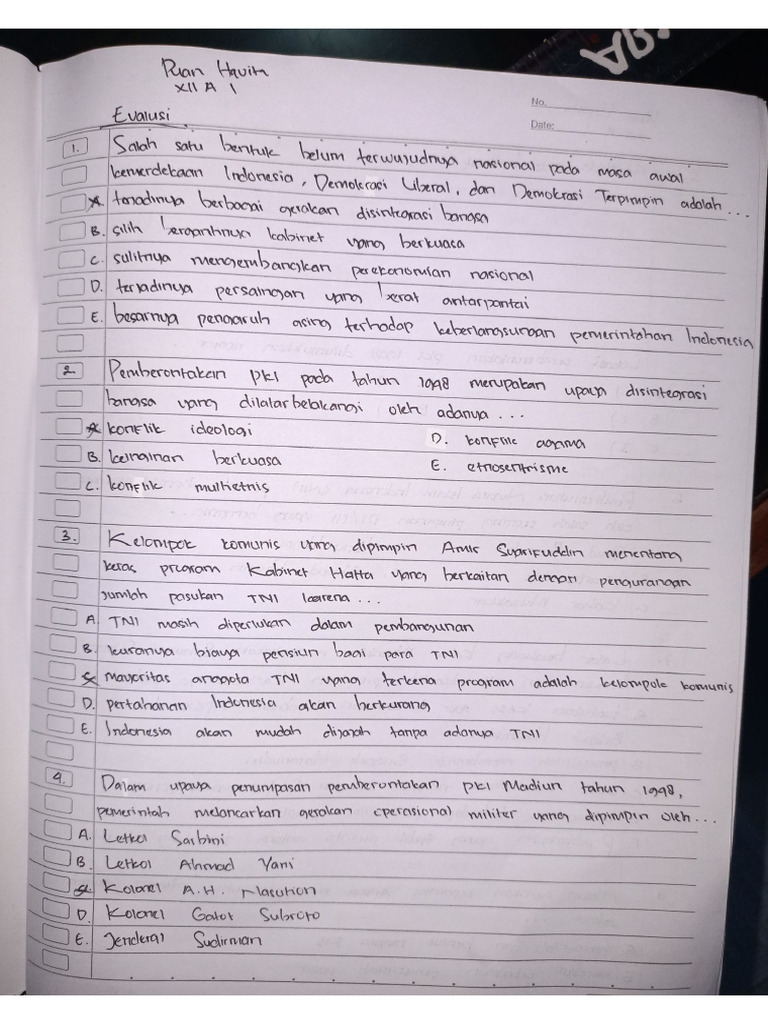 Puan Havita
XII A 1
No.
Date:
Evalusi
1. Salah satu bentuk belum terwujudnya nasional pada masa awal
kemerdekaan Indonesia, Demokrasi Liberal, dan Demokrasi Terpimpin adalah...
A. terjadinya berbagai gerakan disintegrasi bangsa
B. silih bergantinya kabinet yang berkuasa
C. sulitnya mengembangkan perekonomian nasional
D. terjadinya persaingan yang berat antarpartai
E. besarnya pengaruh asing terhadap keberlangsungan pemerintahan Indonesia
2. Pemberontakan PKI pada tahun 1998 merupakan upaya disintegrasi
bangsa yang dilatarbelakangi oleh adanya ...
A. konflik ideologi
D. konflik agama
B. keinginan berkuasa
E. etnosentrisme
C. konflik multietnis
3. Kelompok komunis yang dipimpin Amir Syarifuddin menentang
keras program Kabinet Hatta yang berkaitan dengan pengurangan
jumlah pasukan TNI karena ...
A. TNI masih diperlukan dalam pembangunan
B. kuranya biaya pensiun bagi para TNI
C. mayoritas anggota TNI yang terkena program adalah kelompok komunis
D. pertahanan Indonesia akan berkurang
E. Indonesia akan mudah dijajah tanpa adanya TNI
4. Dalam upaya penumpasan pemberontakan PKI Madiun tahun 1998,
pemerintah melancarkan gerakan operasional militer yang dipimpin oleh...
A. Letkol Sarbini
B. Letkol Ahmad Yani
C. Kolonel A.H. Nasution
D. Kolonel Gatot Subroto
E. Jenderal Sudirman